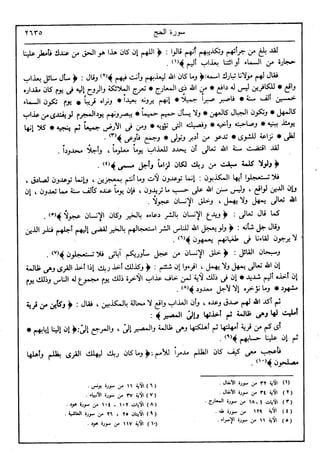 ٢٦٣٥
سورة الحج
لقد بلغ من جرأتهم وتكذيبهم أنهم قالوا : ﴿ اللهم إن كان هذا هو الحق من عندك فأمطر علينا
حجارة من السماء أو ائتنا بعذاب أليم ﴾(١) .
فقال لهم مولانا تبارك اسمه : ﴿ وما كان الله ليعذبهم وأنت فيهم ﴾(٢) وقال : ﴿ سأل سائل بعذاب
واقع * للكافرين ليس له دافع * من الله ذي المعارج * تعرج الملائكة والروح إليه في يوم كان مقداره
خمسين ألف سنة * فاصبر صبراً جميلاً * إنهم يرونه بعيداً * ونراه قريباً * يوم تكون السماء
كالمهل * وتكون الجبال كالعهن * ولا يسأل حميم حميماً * يبصرونهم يود المجرم لو يفتدي من عذاب
يومئذ ببنيه * وصاحبته وأخيه * وفصيلته التي تؤويه * ومن في الأرض جميعاً ثم ينجيه * كلا إنها
لظى * نزاعة للشوى * تدعو من أدبر وتولى * وجمع فأوعى ﴾(٣) .
لقد اقتضت سنة الله تعالى أن يحدد للعذاب يوماً معلوماً ، وأجلاً محدوداً .
﴿ ولولا كلمة سبقت من ربك لكان لزاماً وأجل مسمى ﴾(٤) .
فلا تستعجلوا أيها المكذبون : إنما توعدون لآت وما أنتم بمعجزين ، وإنما توعدون لصادق ،
وإن الدين لواقع ، وليس سنن الله على حسب ما تريدون ، فإن يوماً عنده كألف سنة مما تعدون ، إن
الله تعالى يمهل ولا يهمل ، وخلق الإنسان عجولاً .
كما قال تعالى : ﴿ ويدع الإنسان بالشر دعاءه بالخير وكان الإنسان عجولاً ﴾(٥) .
وقال جل شأنه : ﴿ ولو يعجل الله للناس الشر استعجالهم بالخير لقضي إليهم أجلهم فنذر الذين
لا يرجون لقاءنا في طغيانهم يعمهون ﴾(٦) .
وسبحان القائل : ﴿ خلق الإنسان من عجل سأوريكم آياتي فلا تستعجلون ﴾(٧) .
إن الله تعالى يمهل ولا يهمل ، اقرءوا إن شئتم : ﴿ وكذلك أخذ ربك إذا أخذ القرى وهي ظالمة
إن أخذه أليم شديد * إن في ذلك لآية لمن خاف عذاب الآخرة ذلك يوم مجموع له الناس وذلك يوم
مشهود * وما نؤخره إلا لأجل معدود ﴾(٨) .
ثم أكد الله لهم صدق وعده ، وأن العذاب واقع لا محالة بالمكذبين ، فقال : ﴿ وكأين من قرية
أمليت لها وهي ظالمة ثم أخذتها وإليّ المصير ﴾ :
أي كم من قرية أمهلتها ثم أهلكتها وهي ظالمة والمصير إليّ ، والمرجع إليّ : ﴿ إن إلينا إيابهم *
ثم إن علينا حسابهم ﴾(٩) .
فأعجب معي كيف كان الظلم مدمراً للأمم : ﴿ وما كان ربك ليهلك القرى بظلم وأهلها
مصلحون ﴾(١٠) .
(١) الآية ٣٢ من سورة الأنفال .
(٢) الآية ٣٣ من سورة الأنفال .
(٣) الآيات ١ـ١٨ من سورة المعارج .
(٤) الآية ١٢٩ من سورة طه .
(٥) الآية ١١ من سورة الإسراء .
(٦) الآية ١١ من سورة يونس .
(٧) الآية ٣٧ من سورة الأنبياء .
(٨) الآيات ١٠٢ - ١٠٤ من سورة هود .
(٩) الآيتان ٢٥ ، ٢٦ من سورة الغاشية .
(١٠) الآية ١١٧ من سورة هود .